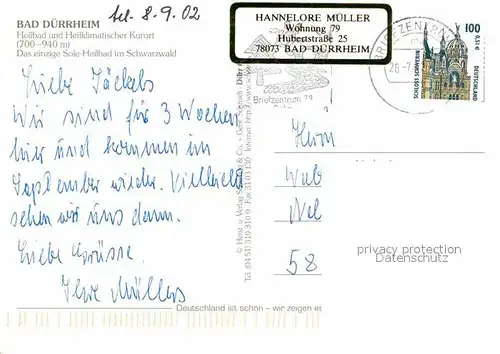 BAD DÜRRHEIM
Heilbad und Heilklimatischer Kurort
(700-940 m)
Das einzige Sole-Heilbad im Schwarzwald
tel. 8.9.02
HANNELORE MÜLLER
Wohnung 79
Hubertstraße 25
78073 BAD DÜRRHEIM
BRIEFZENTRUM
Briefzentrum 78
100
0,51€
DEUTSCHLAND
SCHLOSS SCHWERIN
Liebe Jäckels
Wir sind für 3 Wochen
hier und kommen im
September wieder. Vielleicht
sehen wir uns dann.
Liebe Grüsse.
Ihre Müllers
Herrn
58
privacy protection
Datenschutz
Deutschland ist schön – wir zeigen es